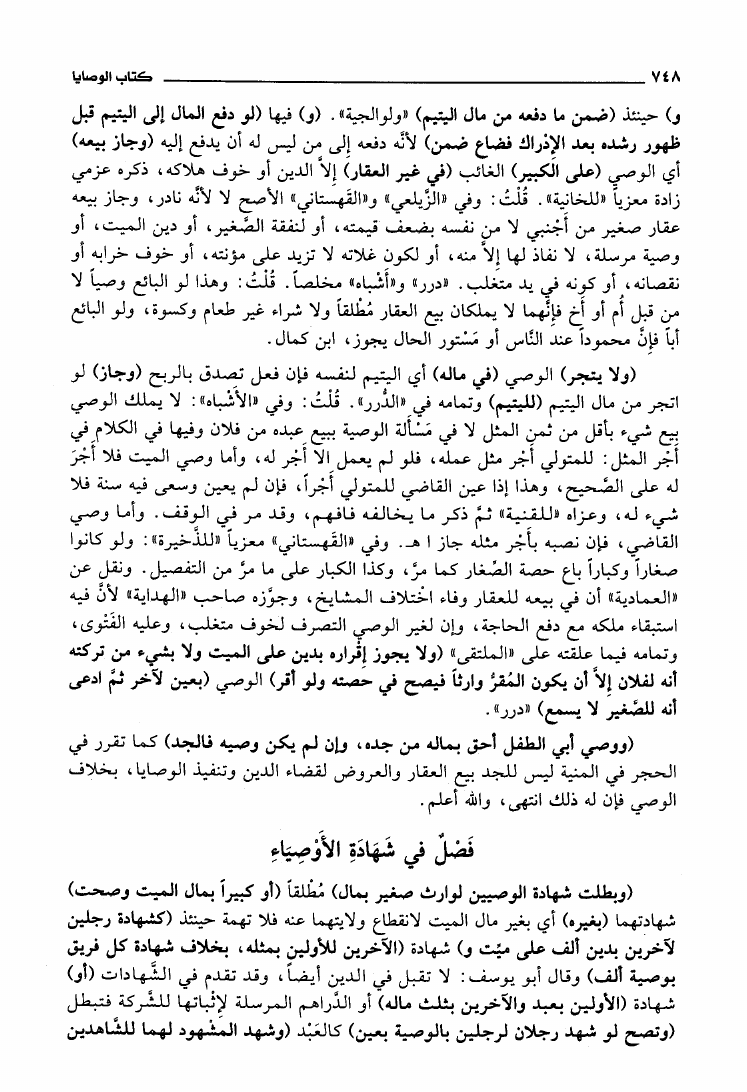 ٧٤٨ كتاب الوصايا
و) حينئذ (ضمن ما دفعه من مال اليتيم) «ولوالجية». (و) فيها (لو دفع المال إلى اليتيم قبل
ظهور رشده بعد الإدراك فضاع ضمن) لأنَّه دفعه إلى من ليس له أن يدفع إليه (وجاز بيعه)
أي الوصي (على الكبير) الغائب (في غير العقار) إلاَّ الدين أو خوف هلاكه، ذكره عزمي
زادة معزياً «للخانية». قُلْتُ: وفي «الزَّيلعي» و«القَهستاني» الأصح لا لأنَّه نادر، وجاز بيعه
عقار صغير من أجنبي لا من نفسه بضعف قيمته، أو لنفقة الصَّغير، أو دين الميت، أو
وصية مرسلة، لا نفاذ لها إلاَّ منه، أو لكون غلاته لا تزيد على مؤنته، أو خوف خرابه أو
نقصانه، أو كونه في يد متغلب. «درر» و«أشباه» مخلصاً. قُلْتُ: وهذا لو البائع وصياً لا
من قبل أُم أو أخ فإنَّهما لا يملكان بيع العقار مُطْلقاً ولا شراء غير طعام وكسوة، ولو البائع
أباً فإنَّ محموداً عند النَّاس أو مَسْتور الحال يجوز، ابن كمال.
(ولا يتجر) الوصي (في ماله) أي اليتيم لنفسه فإن فعل تصدق بالربح (وجاز) لو
اتجر من مال اليتيم (لليتيم) وتمامه في «الدُّرر». قُلْتُ: وفي «الأشْباه»: لا يملك الوصي
بيع شيء بأقل من ثمن المثل لا في مَسْألة الوصية ببيع عبده من فلان وفيها في الكلام في
أَجْر المثل: للمتولي أجْر مثل عمله، فلو لم يعمل الا أجْر له، وأما وصي الميت فلا أَجْرَ
له على الصَّحيح، وهذا إذا عين القاضي للمتولي أَجْراً، فإن لم يعين وسعى فيه سنة فلا
شيء له، وعزاه «للقنية» ثمَّ ذكر ما يخالفه فافهم، وقد مر في الوقف. وأما وصي
القاضي، فإن نصبه بأَجْر مثله جاز ا هـ. وفي «القَهستاني» معزياً «للذَّخيرة»: ولو كانوا
صغاراً وكباراً باع حصة الصِّغار كما مرَّ، وكذا الكبار على ما مرَّ من التفصيل. ونقل عن
«العمادية» أن في بيعه للعقار وفاء اخْتلاف المشايخ، وجوَّزه صاحب «الهداية» لأنَّ فيه
استبقاء ملكه مع دفع الحاجة، وإن لغير الوصي التصرف لخوف متغلب، وعليه الفَتْوى،
وتمامه فيما علقته على «الملتقى» (ولا يجوز إقْراره بدين على الميت ولا بشيء من تركته
أنه لفلان إلاَّ أن يكون المُقرُّ وارثاً فيصح في حصته ولو أقر) الوصي (بعين لآخر ثمَّ ادعى
أنه للصَّغير لا يسمع) «درر».
(ووصي أبي الطفل أحق بماله من جده، وإن لم يكن وصيه فالجد) كما تقرر في
الحجر في المنية ليس للجد بيع العقار والعروض لقضاء الدين وتنفيذ الوصايا، بخلاف
الوصي فإن له ذلك انتهى، والله أعلم.
فَصْلٌ في شَهَادَةِ الأَوْصِيَاءِ
(وبطلت شهادة الوصيين لوارث صغير بمال) مُطْلقاً (أو كبيراً بمال الميت وصحت)
شهادتهما (بغيره) أي بغير مال الميت لانقطاع ولايتهما عنه فلا تهمة حينئذ (كشهادة رجلين
لآخرين بدين ألف على ميِّت و) شهادة (الآخرين للأولين بمثله، بخلاف شهادة كل فريق
بوصية ألف) وقال أبو يوسف: لا تقبل في الدين أيضاً، وقد تقدم في الشَّهادات (أو)
شهادة (الأولين بعبد والآخرين بثلث ماله) أو الدَّراهم المرسلة لإثْباتها للشَّركة فتبطل
(وتصح لو شهد رجلان لرجلين بالوصية بعين) كالعَبْد (وشهد المشْهود لهما للشَّاهدين